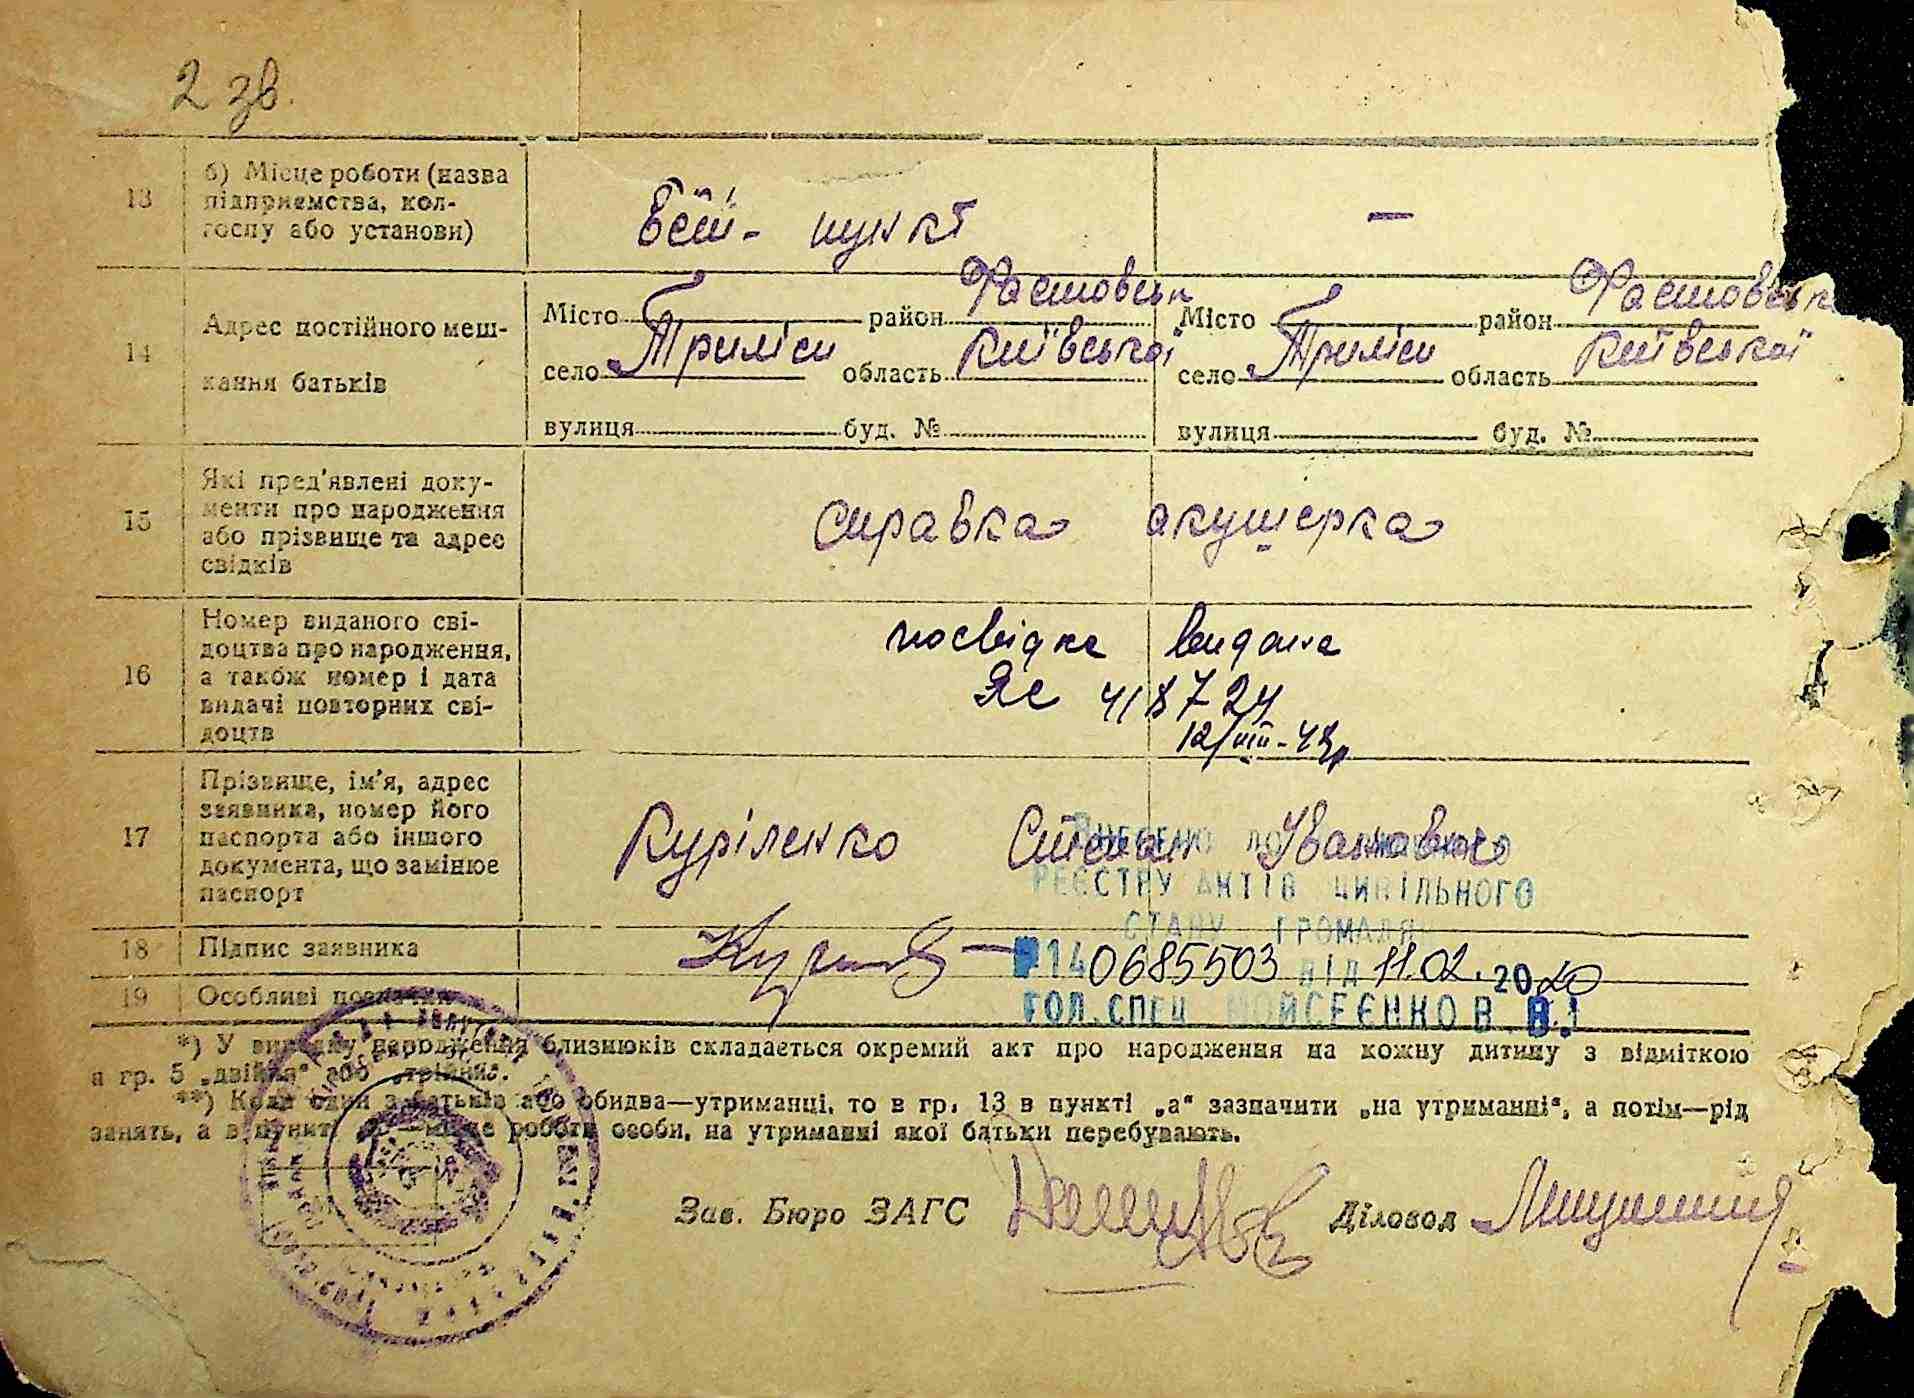 2 зв.
13
б) Місце роботи (назва
підприємства, кол-
госпу або установи)
пункт
—
14
Адрес постійного меш-
кання батьків
Місто район Фастовськ
село Триліси область Київської
вулиця буд. №
Місто район Фастовськ
село Триліси область Київської
вулиця буд. №
15
Які пред'явлені доку-
менти про народження
або прізвище та адрес
свідків
справка акушерка
16
Номер виданого сві-
доцтва про народження,
а також номер і дата
видачі повторних сві-
доцтв
посвідка видана
ЯЕ 418724
12/VIII-48р
17
Прізвище, ім'я, адрес
заявника, номер його
паспорта або іншого
документа, що замінює
паспорт
Куріленко Степан Іванович
ВНЕСЕНО ДО
РЕЄСТРУ АКТІВ ЦИВІЛЬНОГО
СТАНУ ГРОМАДЯН
18
Підпис заявника
№140685503 ВІД 11.02.2020
19
Особливі позначки
ГОЛ.СПЕЦ МОЙСЕЄНКО В.В.
*) У випадку народження близнюків складається окремий акт про народження на кожну дитину з відміткою
в гр. 5 „двійня“ або „трійня“.
**) Коли один з батьків або обидва—утриманці, то в гр. 13 в пункті „а“ зазначити „на утриманні“, а потім—рід
занять, а в пункті місце роботи особи, на утриманні якої батьки перебувають.
Зав. Бюро ЗАГС Діловод